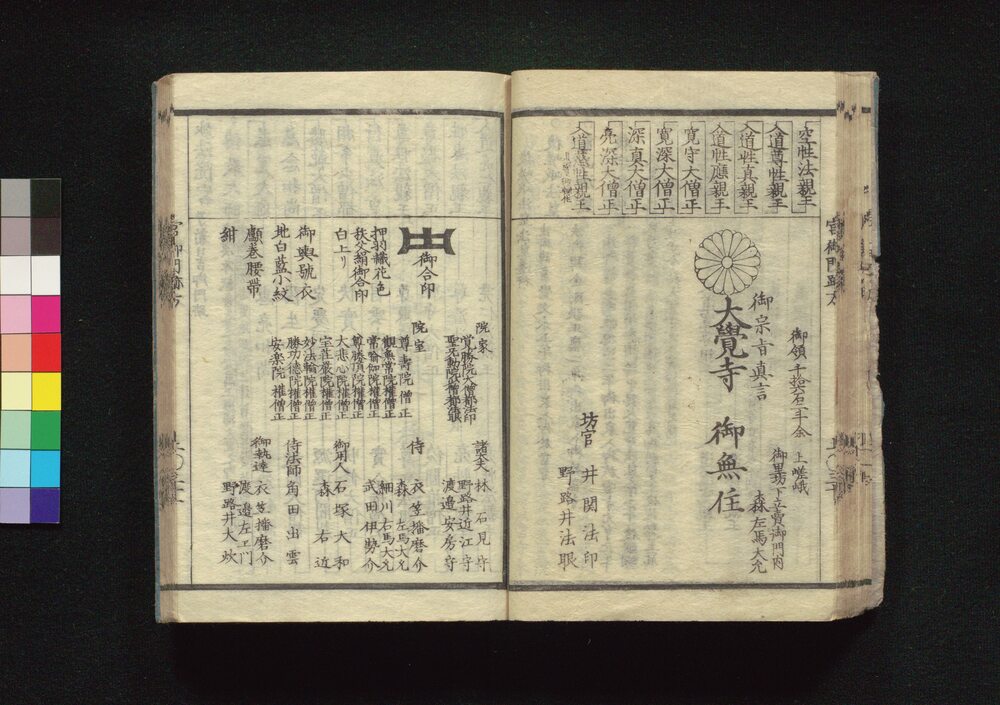 空性法親王
入道尊性親王
入道性真親王
入道性應親王
寛守大僧正
寛深大僧正
深真大僧正
亮深大僧正
御領千拾六石二斗余
上嵯峨
御里坊下立賣御門内
森左馬大允
御宗旨真言
大覺寺 御無住
坊官
井関法印
野路井法眼
宮御門跡方
御合印
押羽織花色
秩父絹御合印
白上リ
御輿號衣
地白藍小紋
顱巻腰帶
紺
院家
覚勝院大僧都法印
院室
尊壽院僧正
大悲心院権僧正
宝荘厳院権僧正
妙法輪院権僧正
勝功德院権僧正
安楽院権僧正
諸大夫
林石見守
野路井近江守
渡邉安房守
侍
衣笠播磨介
森左馬大允
細川右馬大允
武田伊勢介
御用人
石塚大和
森右近
侍法師
角田出雲
御執達
衣笠播磨介
渡邉左エ門
野路井大炊
宮御門跡方